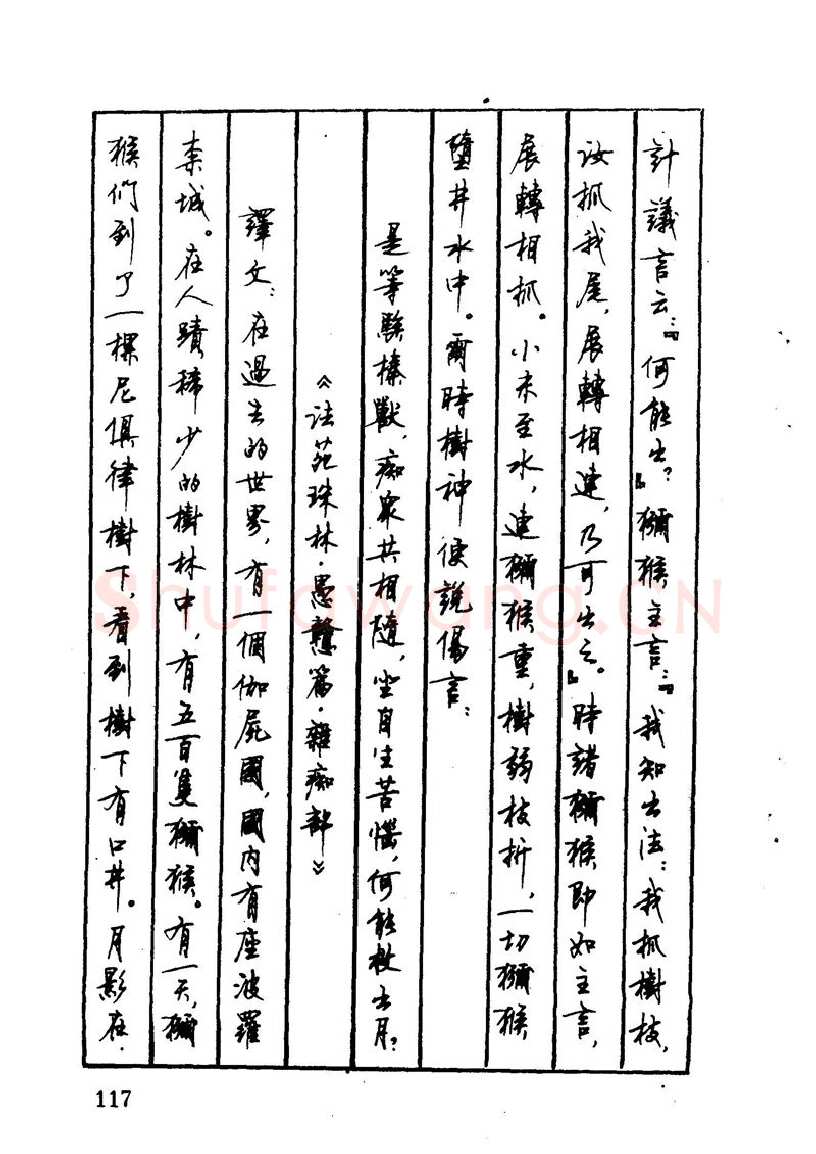 計議言云:『何能出?』獼猴主言:『我知出法:我抓樹枝,
汝抓我尾,展轉相連,乃可出之。』時諸獼猴即如主言,
展轉相抓。小未至水,連獼猴重,樹弱枝折,一切獼猴
墮井水中。爾時樹神便說偈言:
是等騃榛獸,痴衆共相隨,坐自生苦惱,何能救出月?
《法苑珠林·愚戇篇·雜痴部》
譯文:在過去的世界,有一個伽屍國,國内有座波羅
柰城。在人蹟稀少的樹林中,有五百隻獼猴。有一天,獼
猴們到了一棵尼俱律樹下,看到樹下有口井。月影在
117
Shufawang.CN